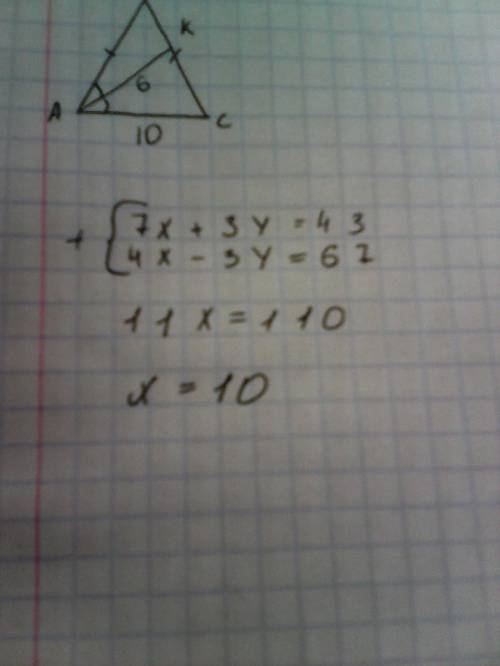 K
6
A
C
10
+ { 7x + 3y = 43
4x - 3y = 67
11x = 110
x = 10